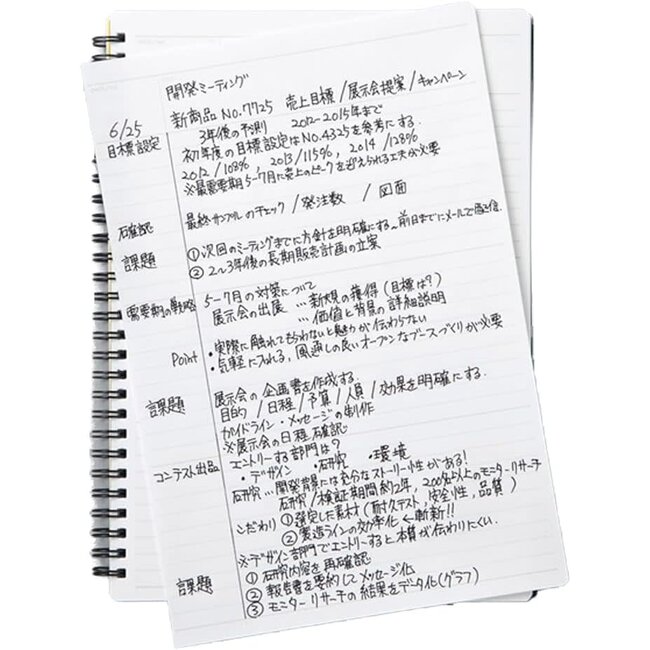 開発ミーティング
6/25 新商品 No.7725 売上目標/展示会提案/キャンペーン
目標設定 3年後の予測 2012-2015年まで
初年度の目標設定はNo.4325を参考にする.
2012/108% 2013/115%, 2014/128%
※最需要期5-7月に売上のピークを迎えられる工夫が必要
確認 最終サンプルのチェック/発注数 / 図面
課題 ①次回のミーティングまでに方針を明確にする→前日までにメールで送信.
②2~3年後の長期販売計画の立案
需要期の戦略 5-7月の対策について
展示会の出展 …新規の獲得(目標は?)
…価値と背景の詳細説明
Point ・実際に触れてもらわないと魅力が伝わらない
・気軽にふれる,風通しの良いオープンなブースづくりが必要
課題 展示会の企画書を作成する
目的/日程/予算/人員/効果を明確にする.
ガイドライン・メッセージの制作
※展示会の日程確認
コンテスト出品 エントリーする部門は?
・デザイン ・研究 ・環境
研究…開発背景には充分なストーリー性がある!
研究/検証期間約2年,200名以上のモニターリサーチ
こだわり ①選定した素材(耐久テスト,安全性,品質)
②製造ラインの効率化←斬新!!
※デザイン部門でエントリーすると本質が伝わりにくい.
課題 ①研究内容を再確認
②報告書を要約してメッセージ化
③モニターリサーチの結果をデータ化(グラフ)